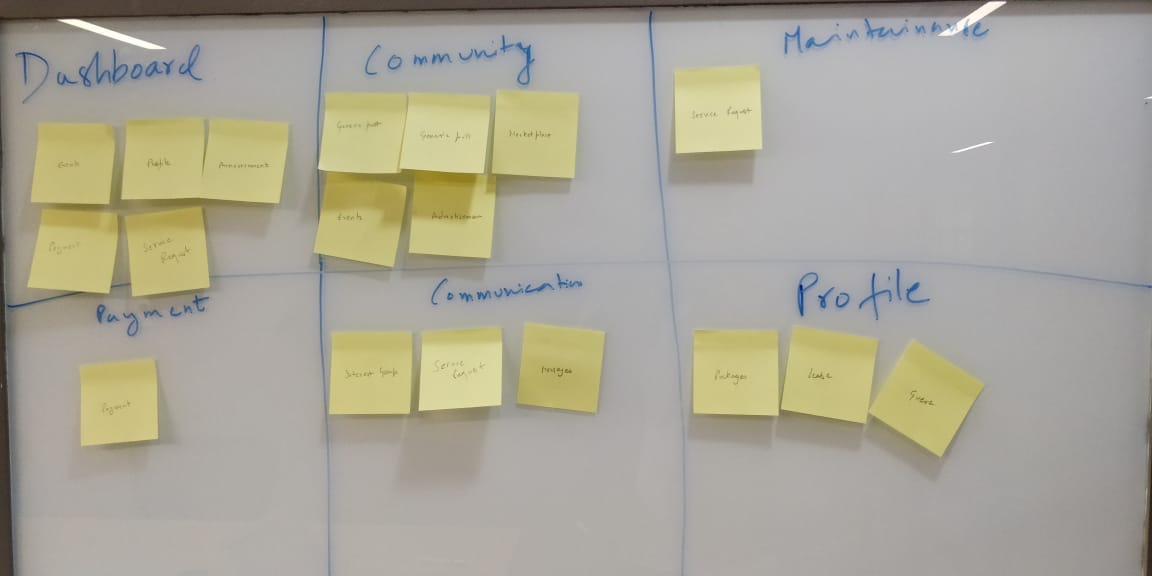 Dashboard
Events
Profile
Announcement
Payment
Service
Request
Community
Generic post
Generic poll
Marketplace
Events
Advertisement
Maintainance
Service Request
Payment
Payment
Communication
Interest Group
Service
Request
Messages
Profile
Packages
Lease
Guest